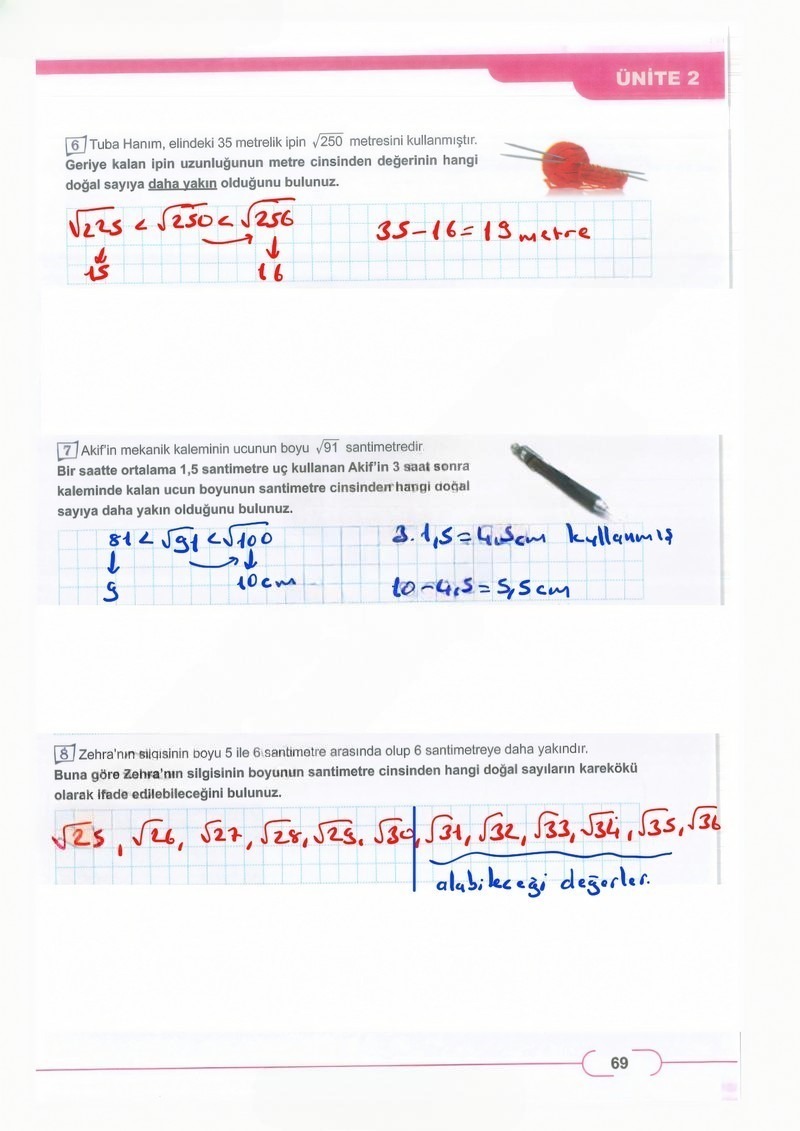 ÜNİTE 2
6 Tuba Hanım, elindeki 35 metrelik ipin √250 metresini kullanmıştır.
Geriye kalan ipin uzunluğunun metre cinsinden değerinin hangi
doğal sayıya daha yakın olduğunu bulunuz.
√225 < √250 < √256 35-16=19 metre
15 16
7 Akif'in mekanik kaleminin ucunun boyu √91 santimetredir
Bir saatte ortalama 1,5 santimetre uç kullanan Akif'in 3 saat sonra
kaleminde kalan ucun boyunun santimetre cinsinden hangi doğal
sayıya daha yakın olduğunu bulunuz.
81 < √91 < √100 3.1,5=4,5cm kullanmış
9 10cm 10-4,5=5,5cm
8 Zehra'nın silgisinin boyu 5 ile 6 santimetre arasında olup 6 santimetreye daha yakındır.
Buna göre Zehra'nın silgisinin boyunun santimetre cinsinden hangi doğal sayıların karekökü
olarak ifade edilebileceğini bulunuz.
√25, √26, √27, √28, √29, √30, √31, √32, √33, √34, √35, √36
alabileceği değerler.
69